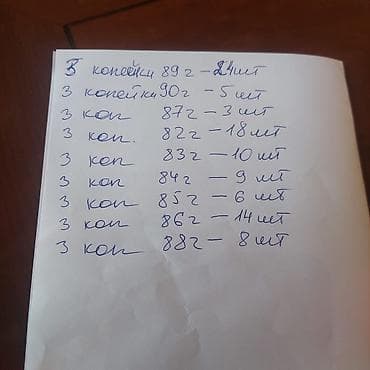 3 копейки 89г – 24шт
3 копейки 90г – 5шт
3 коп 87г – 3шт
3 коп. 82г – 18шт
3 коп 83г – 10шт
3 коп 84г – 9шт
3 коп 85г – 6шт
3 коп 86г – 14шт
3 коп 88г – 8шт